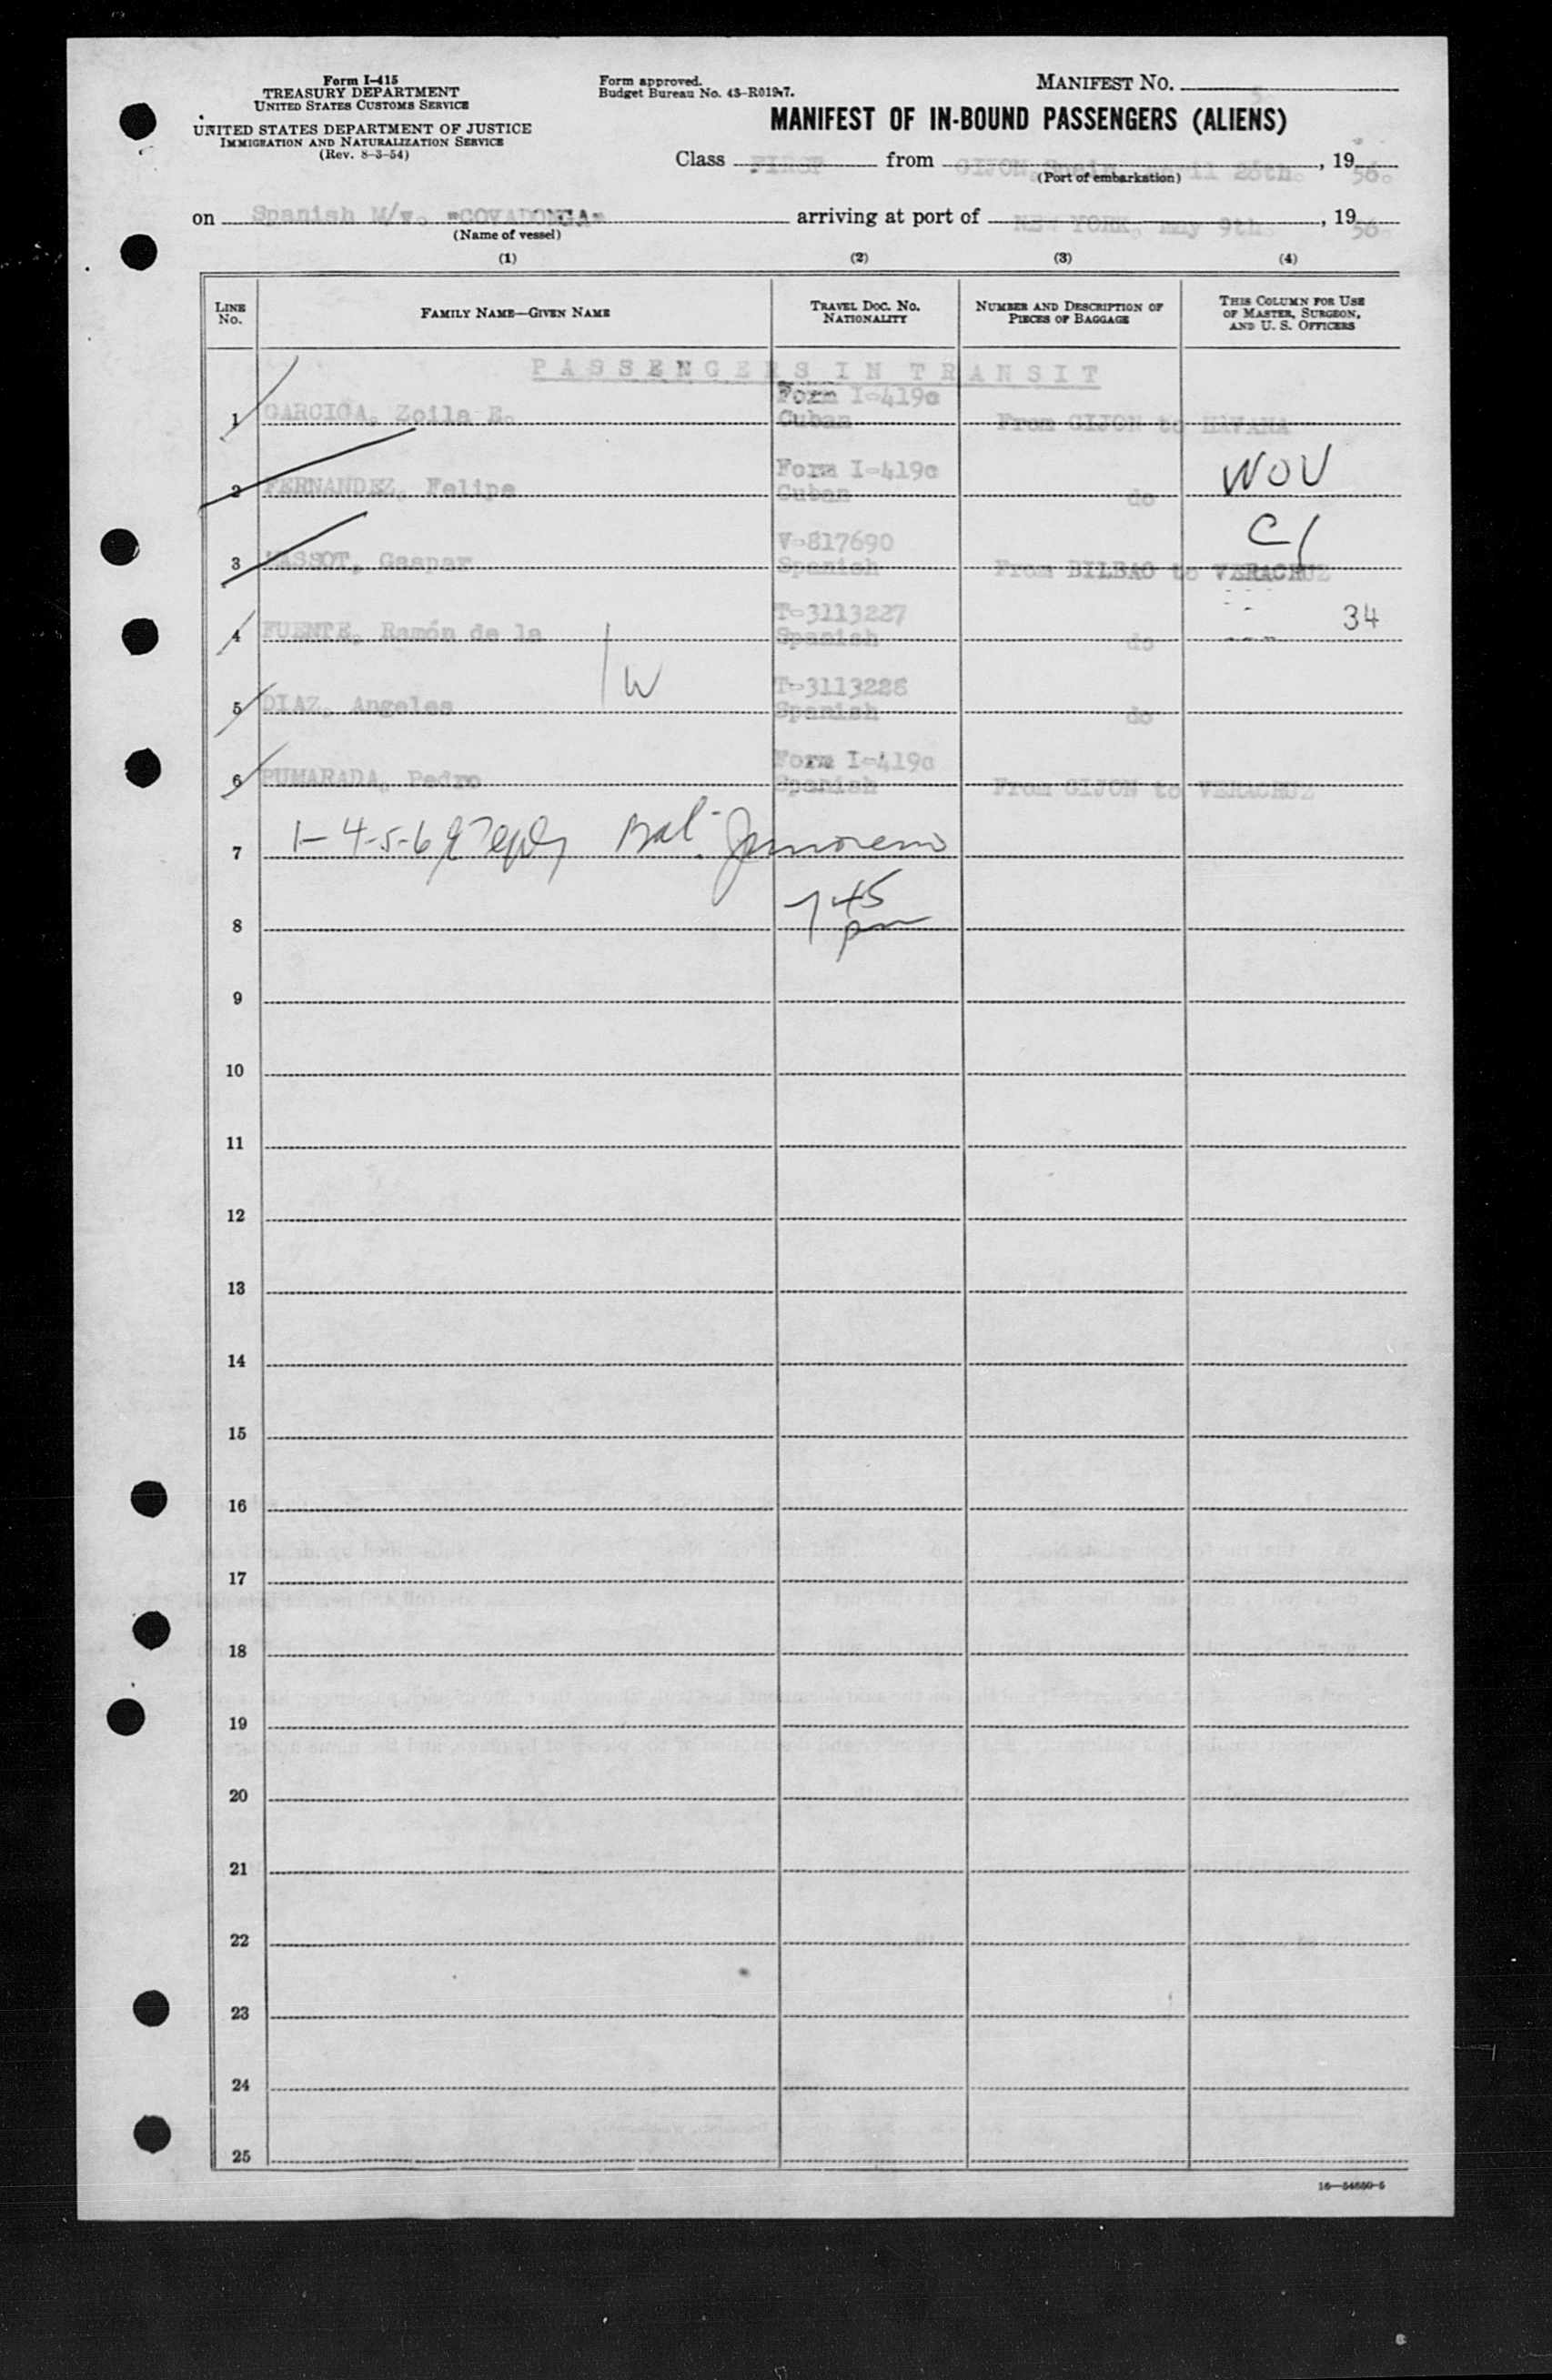 Form I-415
TREASURY DEPARTMENT
UNITED STATES CUSTOMS SERVICE
UNITED STATES DEPARTMENT OF JUSTICE
IMMIGRATION AND NATURALIZATION SERVICE
(Rev. 8-3-54)
Form approved.
Budget Bureau No. 43-R019.7.
MANIFEST NO.
MANIFEST OF IN-BOUND PASSENGERS (ALIENS)
Class FIRST from GIJON, Spain 26th. , 19 56.
(Port of embarkation)
on Spanish M/v. "COVADONGA" arriving at port of NEW YORK, May 9th , 19 56.
(Name of vessel)
(1) (2) (3) (4)
LINE No. FAMILY NAME—GIVEN NAME TRAVEL DOC. NO. NATIONALITY NUMBER AND DESCRIPTION OF PIECES OF BAGGAGE THIS COLUMN FOR USE OF MASTER, SURGEON, AND U. S. OFFICERS
PASSENGERS IN TRANSIT
Form I-419c
1 GARCIGA, Zoila E. Cuban From GIJON to HAVANA
Form I-419c WOV
2 FERNANDEZ, Felipe Cuban do
V-817690 C/
3 MASSOT, Gaspar Spanish From BILBAO to VERACRUZ
T-3113227 34
4 FUENTE, Ramón de la Spanish do
W T-3113228
5 DIAZ, Angeles Spanish do
Form I-419c
6 PUMARADA, Pedro Spanish From GIJON to VERACRUZ
7 1-4-5-6 Bal.
8 7 45 pm
9
10
11
12
13
14
15
16
17
18
19
20
21
22
23
24
25
16—54650-5